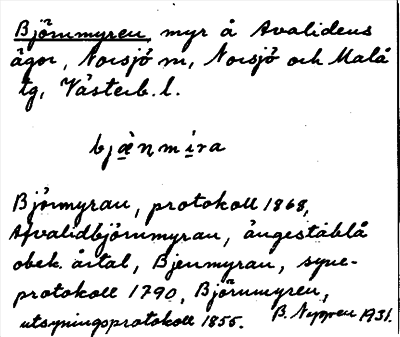 Björnmyren, myr å Avalidens
ägor, Norsjö sn, Norsjö och Malå
tg, Västerb. l.
bjæ̀nmìra
Björmyrau, protokoll 1868,
Afvalidbjörnmyrau,
obek. årtal, Bjenmyrau, syne-
protokoll 1790, Björnmyren,
utsyningsprotokoll 1855. B. Nygren 1931.